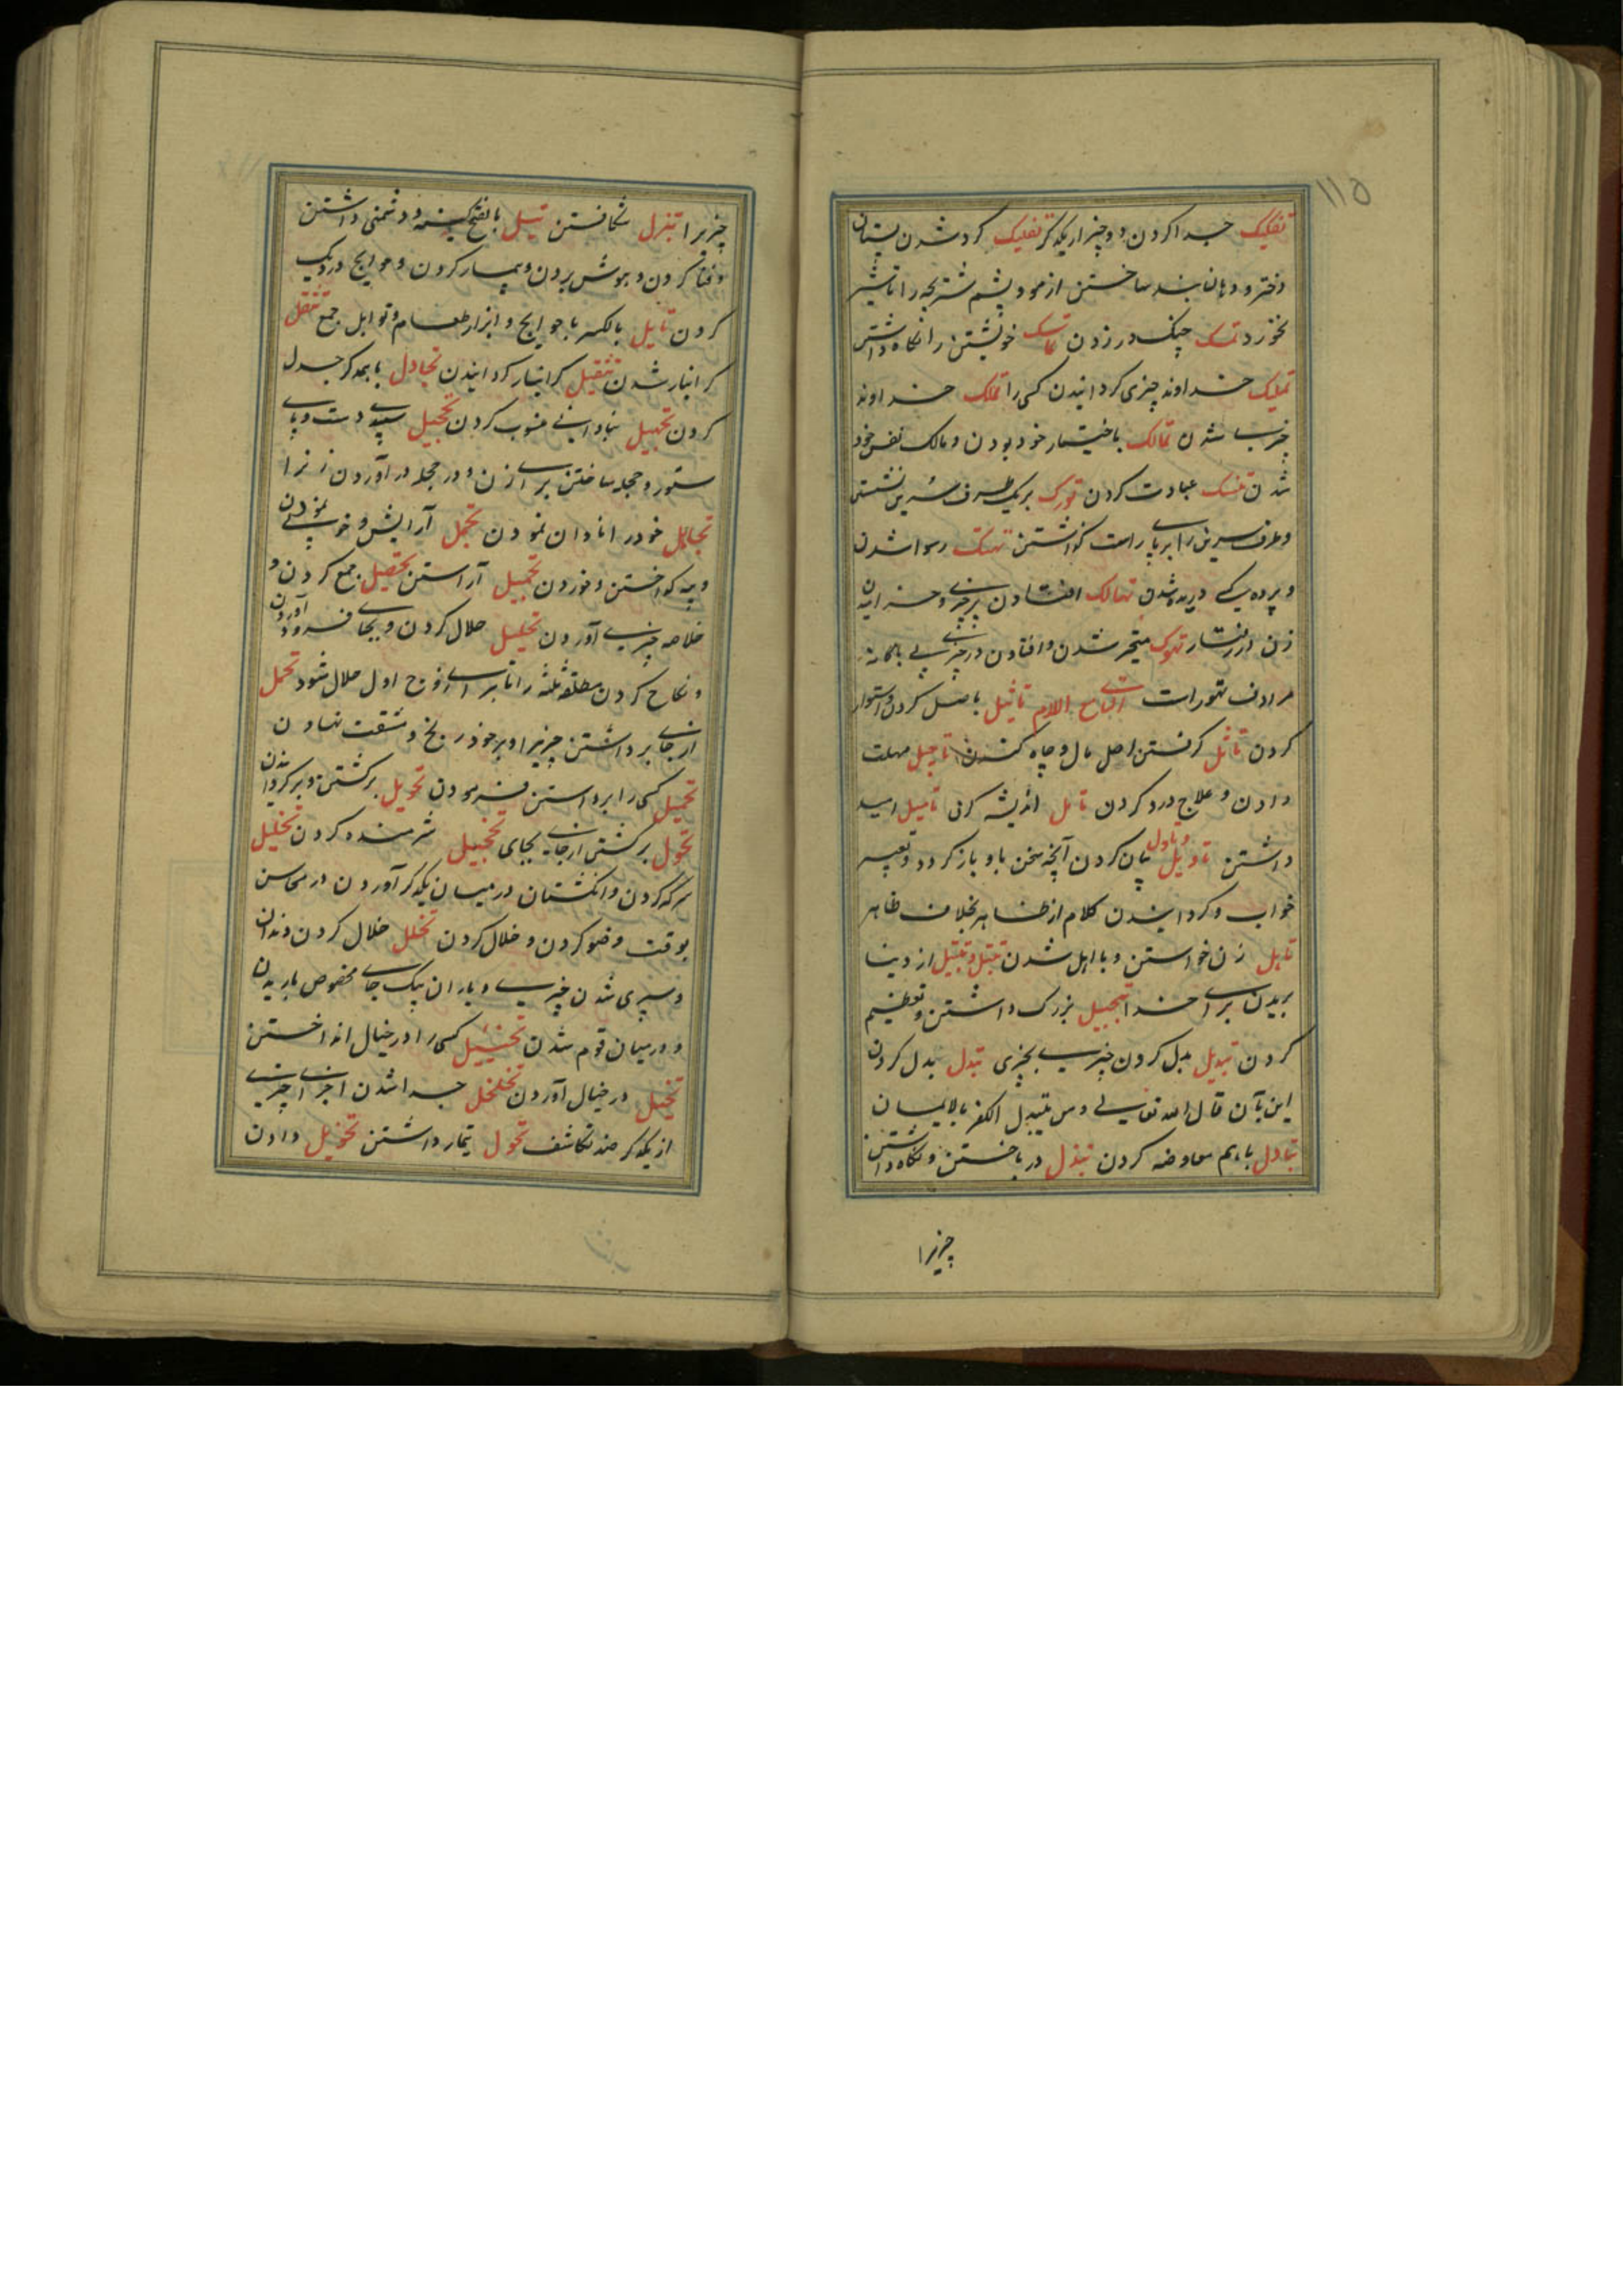 ۱۱۵
تفکیک جدا کردن دو چیز از یکدیگر تفلیک گرد شدن پستان
دختر و دهان بند ساختن از مو و پشم شتر بچه را تا شیر
نخورد تمسک چنگ در زدن تماسک خویشتن را نگاه داشتن
تملیک خداوند چیزی گردانیدن کسی را تملک خداوند
چیزی شدن تمالک باختیار خود بودن و مالک نفس خود
شدن تنسک عبادت کردن تورک بر یک طرف سرین نشستن
و طرف سرین را بر پای راست گذاشتن تهتک رسوا شدن
و پرده کسی دریده شدن تهالک افتادن بر چیزی و خرامیدن
زن در رفتار تهوک متحیر شدن و افتادن در چیزی بی باکانه
مرادف تهور است التاء مع اللام تاثیل باصل کردن و استوار
کردن تاثل گرفتن اصل مال و چاه کندن تاجیل مهلت
دادن و علاج درد کردن تامل اندیشه کردن تامیل امید
داشتن تاویل و تاول بیان کردن آنچه سخن باو باز گردد و تعبیر
خواب و گردانیدن کلام از ظاهر بخلاف ظاهر
تاهل زن خواستن و با اهل شدن تبتل و تبتیل از دنیا
بریدن برای خدا تبجیل بزرگ داشتن و تعظیم
کردن تبدیل بدل کردن چیزی بچیزی تبدل بدل کردن
این بآن قال الله تعالی و من یتبدل الکفر بالایمان
تبادل باهم معاوضه کردن تبذل در باختن و نگاه داشتن
چیزیرا
چیزیرا تبزل شکافتن تبل بالفتح کینه و دشمنی داشتن
و فنا کردن و بهوش بردن و بیمار کردن و حوایج در دیگ
کردن تابل بالکسر باحوایج و ابزار طعام و توابل جمع تثقل
گرانبار شدن تثقیل گرانبار گردانیدن تجادل با همدگر جدل
کردن تجهیل بنادانی منسوب کردن تحجیل سپیدی دست و پای
ستور و حجله ساختن برای زن و در حجله در آوردن زن را
تجاهل خود را نادان نمودن تجمل آرایش و خوبی نمودن
و پیه گداختن و خوردن تجمیل آراستن تحصیل جمع کردن و
خلاصه چیزی آوردن تحلیل حلال کردن و بجای فرود آوردن
و نکاح کردن مطلقه ثلثه را تا برای زوج اول حلال شود تحمل
از جای برداشتن چیزیرا و بر خود رنج و مشقت نهادن
تحمیل کسی را برداشتن فرمودن تحویل برگشتن و برگردانیدن
تحول برگشتن از جای بجای تخجیل شرمنده کردن تخلیل
سرکه کردن و انگشتان در میان یکدگر آوردن در محاسن
بوقت وضو کردن و خلال کردن تخلل خلال کردن دندان
و سپری شدن چیزی و باران بیک جای مخصوص باریدن
و در میان قوم شدن تخییل کسی را در خیال انداختن
تخیل در خیال آوردن تخلخل جدا شدن اجزای چیزی
از یکدگر ضد تکاثف تخول تیمار داشتن تخویل دادن